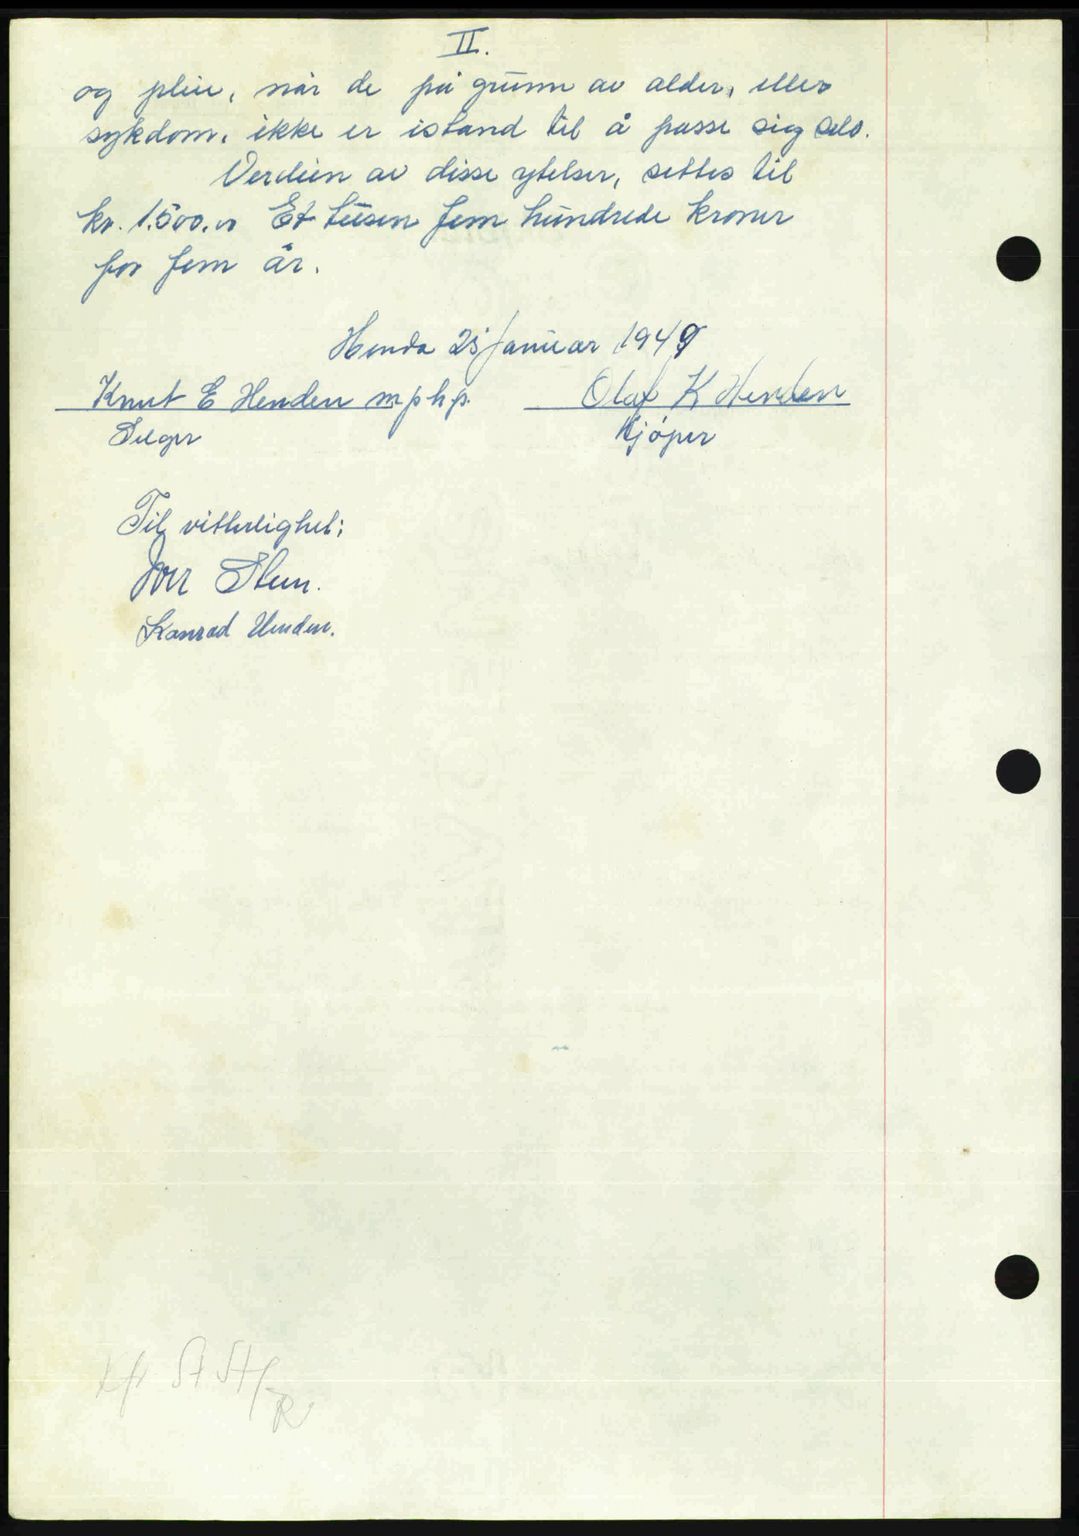 II.
og pleie, når de på grunn av alder, eller
sykdom, ikke er istand til å passe sig selv.
Verdien av disse ytelser, settes til
kr. 1.500.00 Et tusen fem hundrede kroner
for fem år.
Henda 25 Januar 1949
Knut E Henden m p h p.
Olaf K Henden
Selger
Kjøper
Til vitterlighet;
Sten.
Konrad Henden.